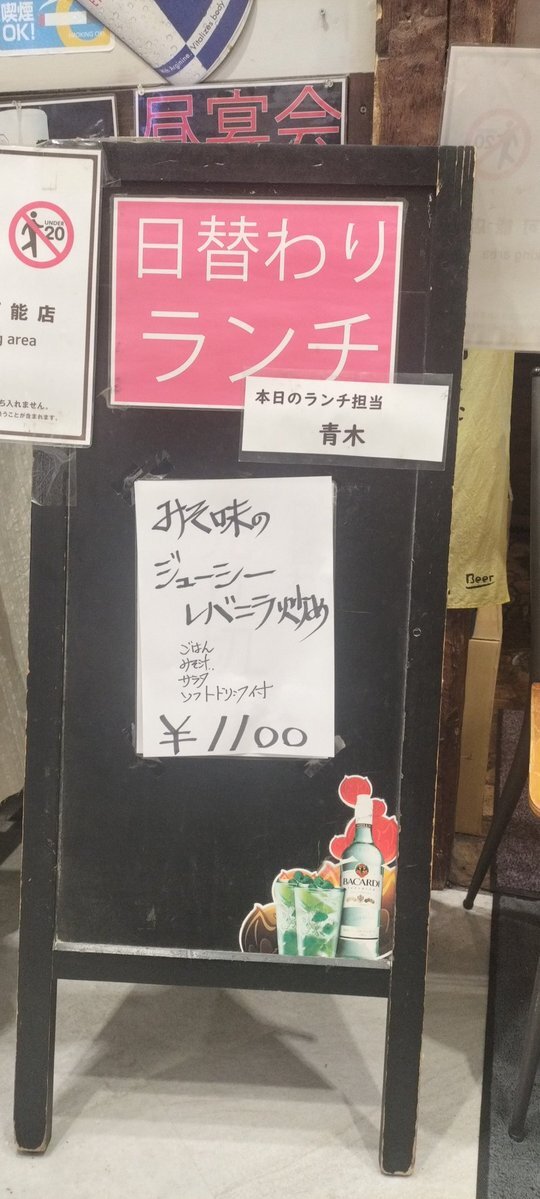 喫煙
OK!
SMOKING OK
Vitalizes body
昼宴会
UNDER
20
能店
g area
ち入れません。
日替わり
ランチ
本日のランチ担当
青木
みそ味の
ジューシー
レバニラ炒め
ごはん
みそ汁
サラダ
ソフトドリンク付
¥1100
Beer
BACARDI